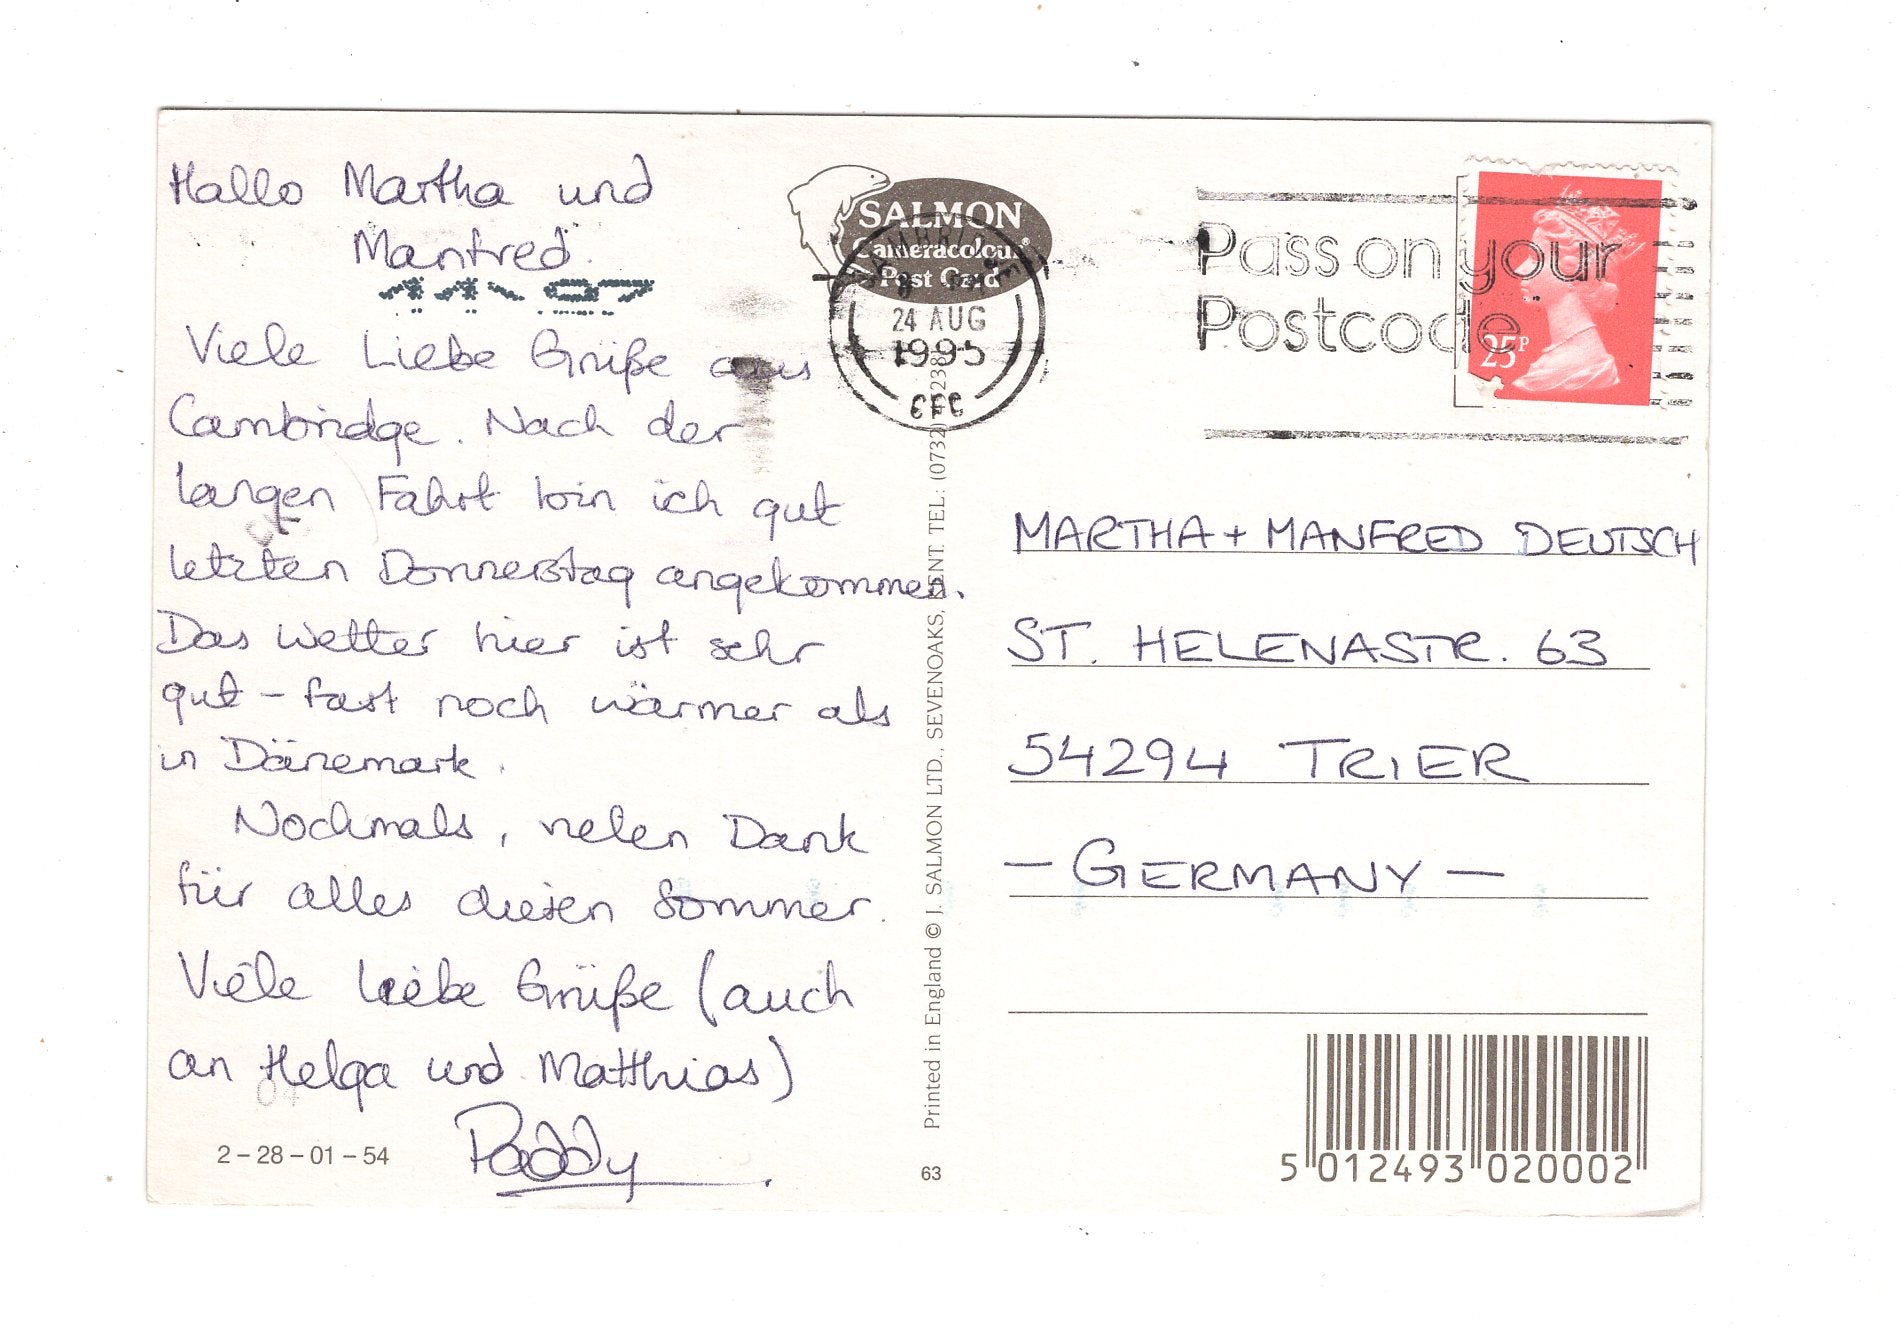 Hallo Martha und
Manfred.
Viele Liebe Grüße aus
Cambridge. Nach der
langen Fahrt bin ich gut
letzten Donnerstag angekommen.
Das Wetter hier ist sehr
gut - fast noch wärmer als
in Dänemark.
Nochmals, vielen Dank
für alles diesen Sommer.
Viele liebe Grüße (auch
an Helga und Matthias)
Paddy
2-28-01-54
SALMON
Cameracolour®
Post Card
24 AUG
1995
Printed in England © J. SALMON LTD., SEVENOAKS, KENT. TEL: (0732)
63
Pass on your
Postcode
25P
MARTHA + MANFRED DEUTSCH
ST. HELENASTR. 63
54294 TRIER
- GERMANY -
5 012493 020002